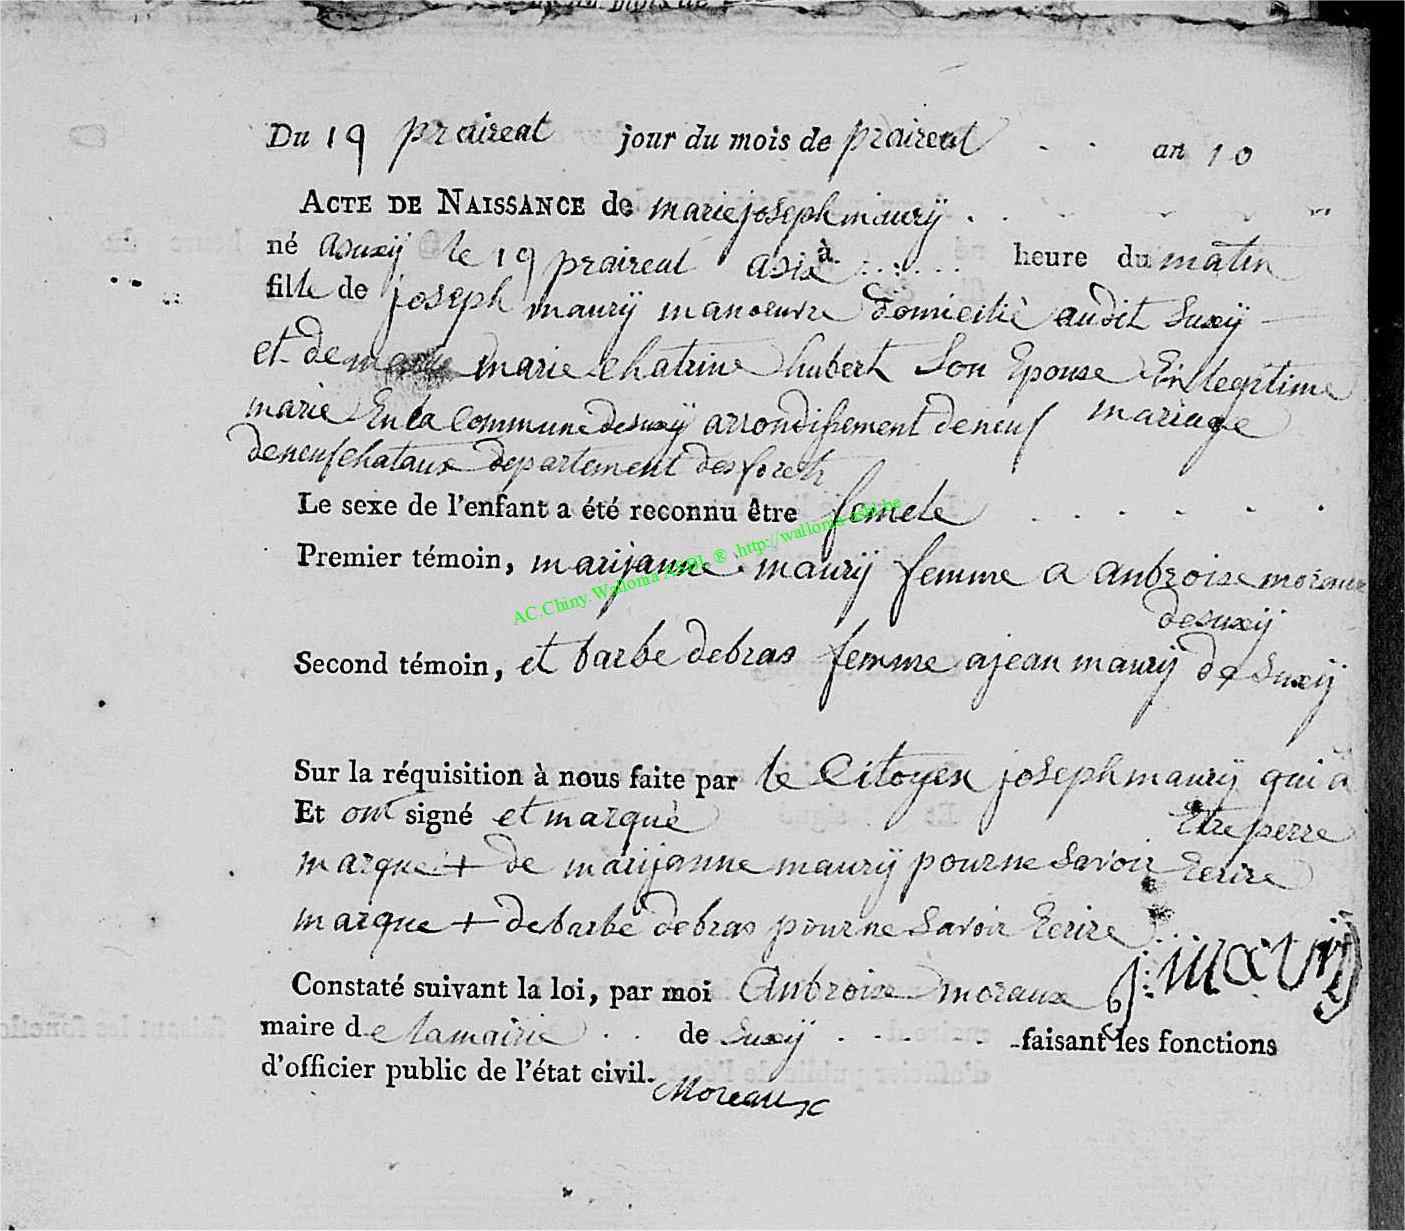 Du 19 praireal jour du mois de praireal . . an 10
ACTE DE NAISSANCE de marie joseph maurÿ . . . . .
né a suxÿ le 19 praireal a six à ...... heure du matin
fille de joseph maurÿ manoeuvre domicilié audit Suxÿ
et de marie chatrine hubert Son Epouse En legitime
mariage
marié En la Commune de suxÿ arrondissement de neuf
de neufchataux departement des forets
Le sexe de l'enfant a été reconnu être femele . . . . . .
Premier témoin, marijanne maurÿ femme a anbroise moraux
de suxÿ
Second témoin, et barbe debras femme a jean maurÿ de Suxÿ
Sur la réquisition à nous faite par le Citoyen joseph maurÿ qui a
Etre perre
Et ont signé et marqué
marque + de marijanne maurÿ pour ne Savoir Ecrire
marque + de barbe debras pour ne Savoir Ecrire
j: maurÿ
Constaté suivant la loi, par moi Anbroise moraux
maire de la mairie . . de Suxÿ . . . . faisant les fonctions
d'officier public de l'état civil.
Moreaux
AC.Chiny.Wallonia ASBL ® http://wallonia-asbl.be